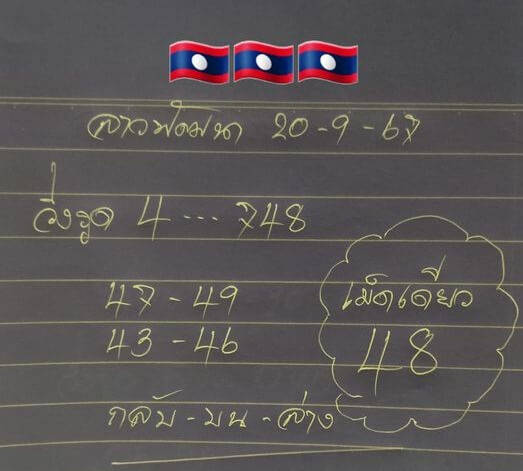 ลาวพัฒนา 20-9-67
วิ่งรูด 4 ... 748
47-49
43-46
เม็ดเดียว
48
กลับ-บน-ล่าง